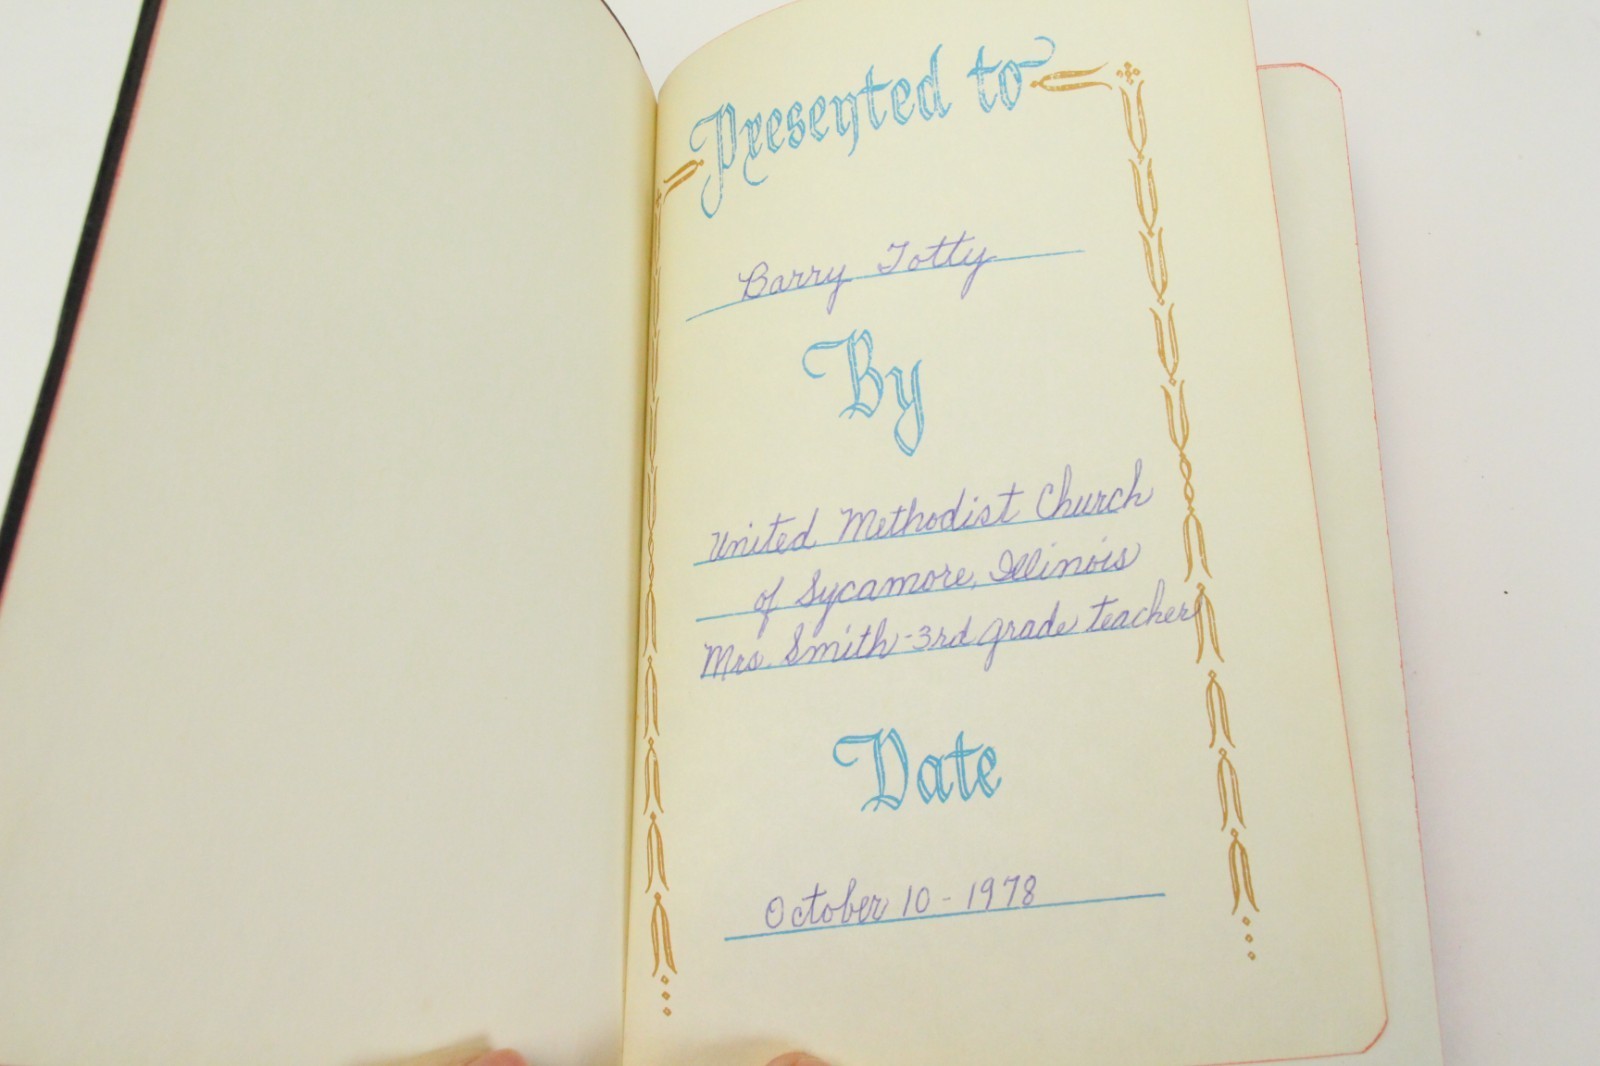 Presented to
Barry Totty
By
United Methodist Church
of Sycamore, Illinois
Mrs. Smith - 3rd grade teacher
Date
October 10 - 1978